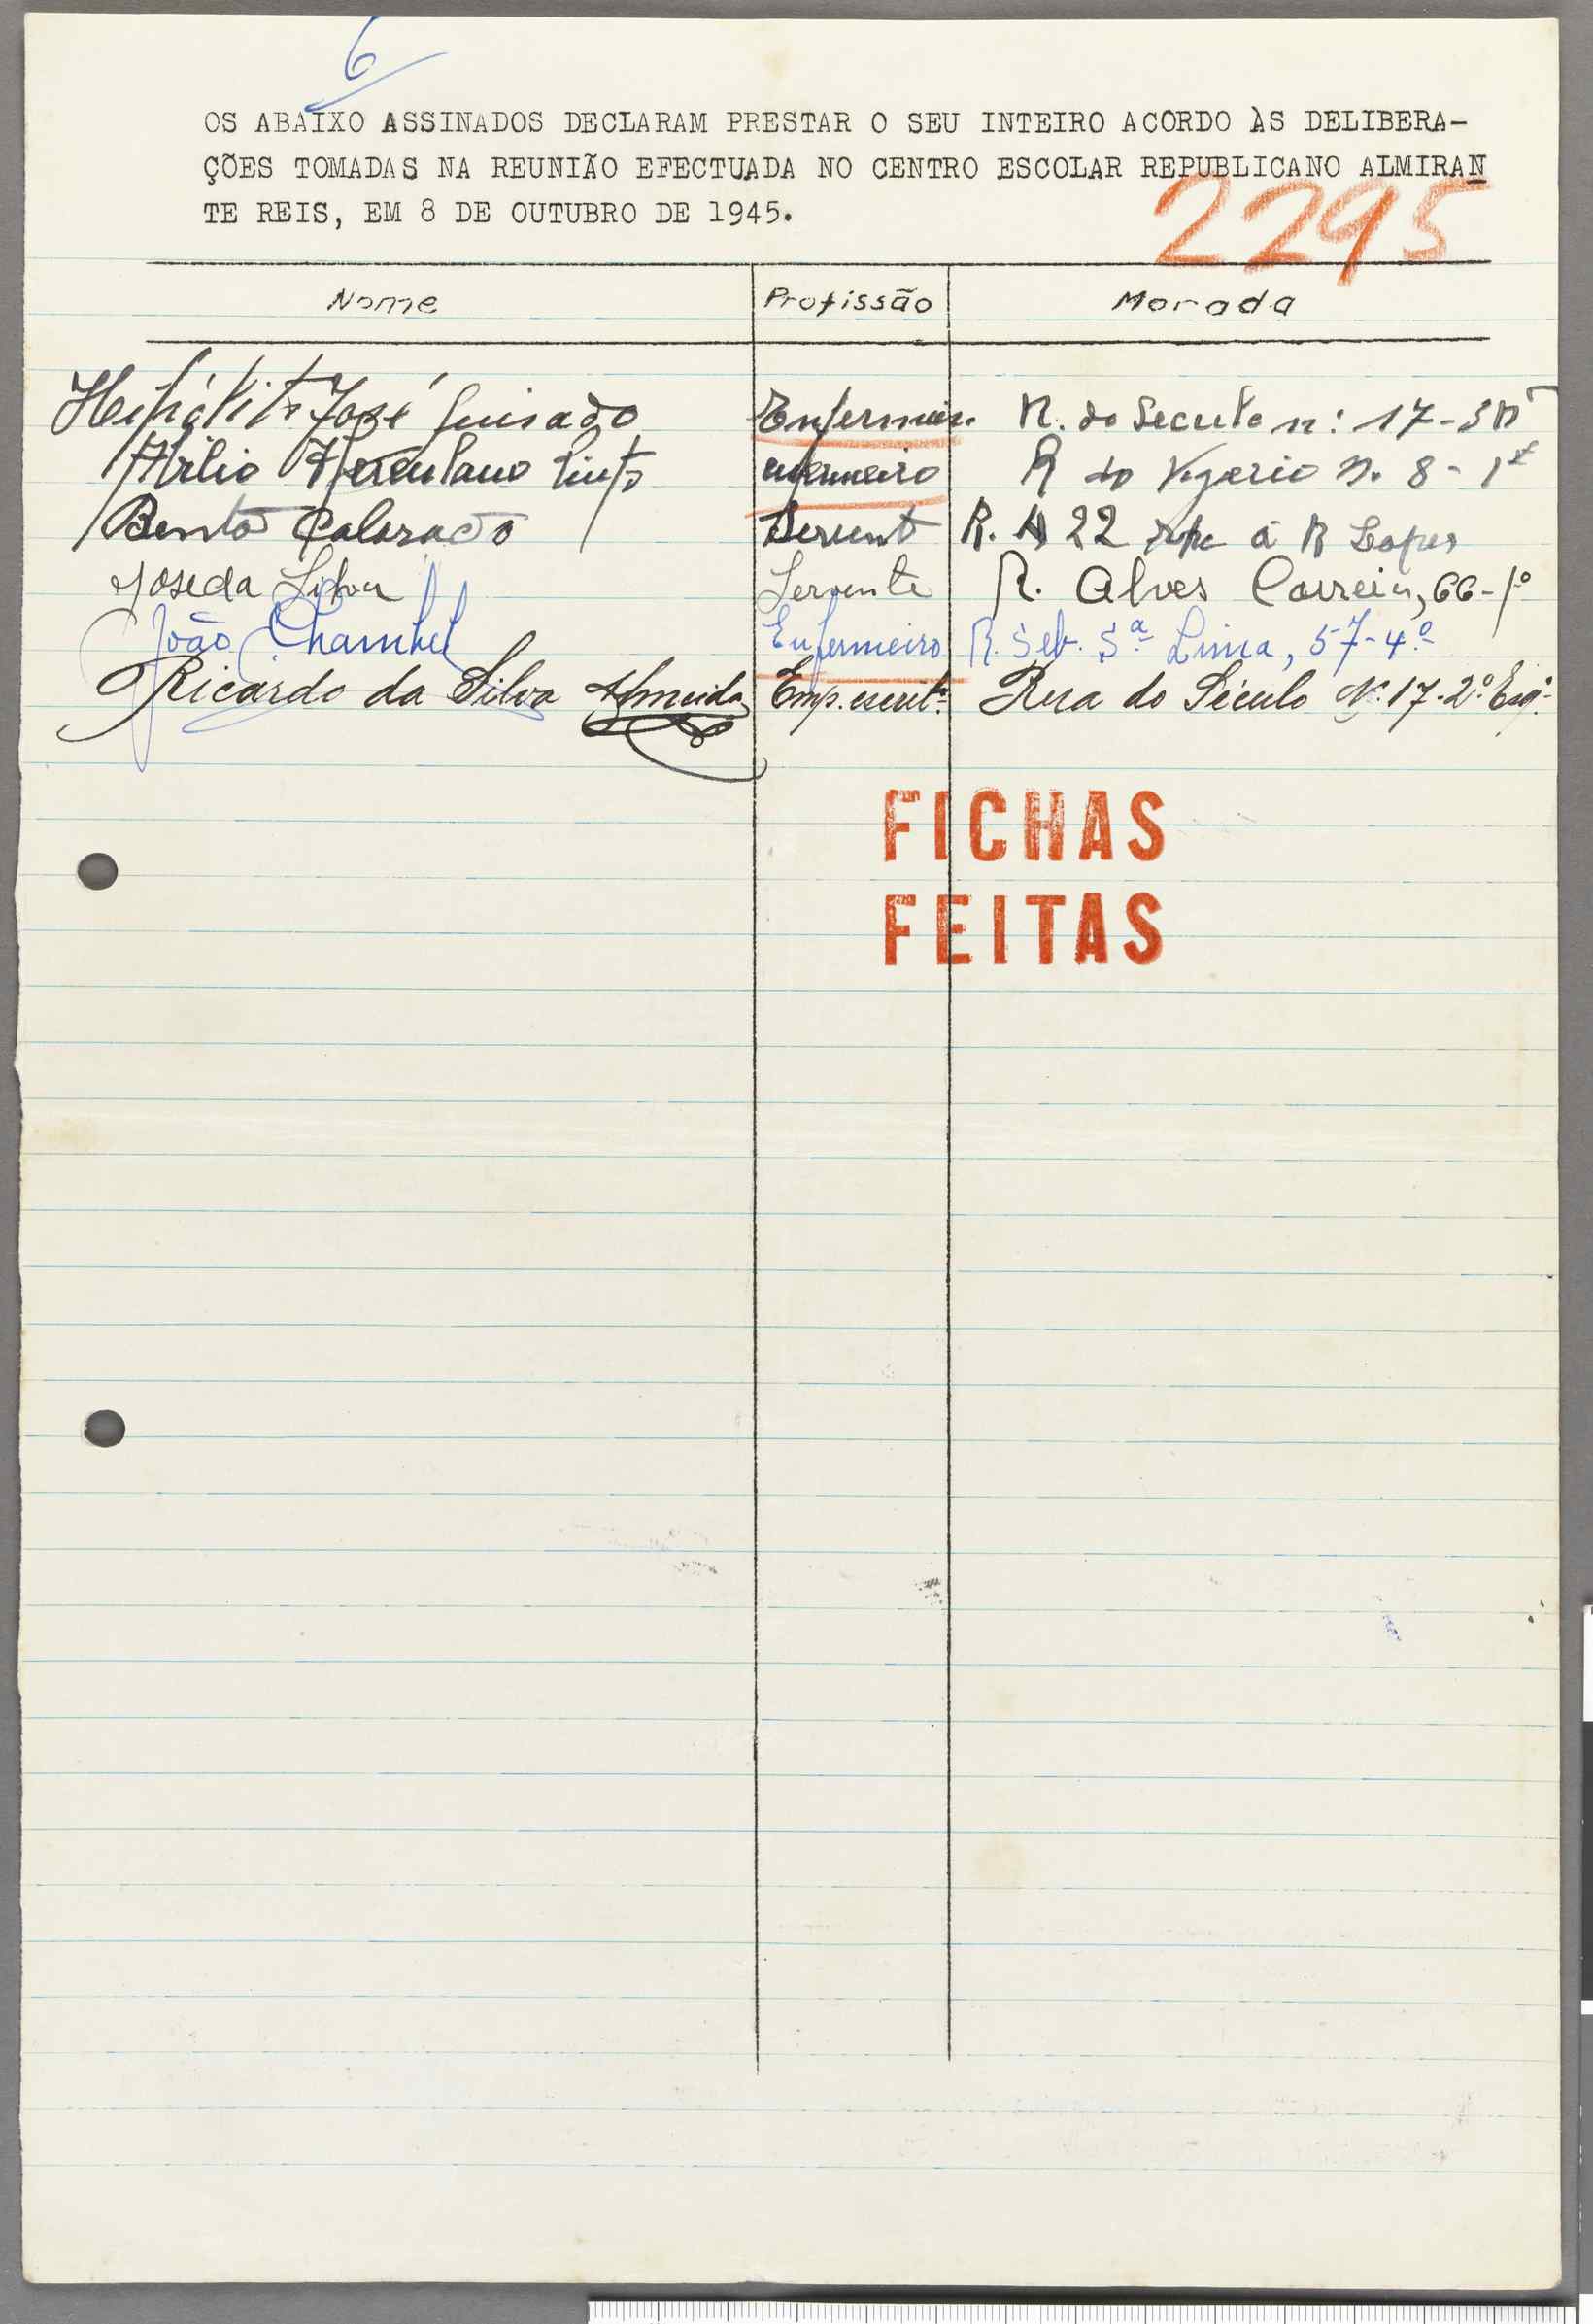 6
OS ABAIXO ASSINADOS DECLARAM PRESTAR O SEU INTEIRO ACORDO ÀS DELIBERA-
ÇÕES TOMADAS NA REUNIÃO EFECTUADA NO CENTRO ESCOLAR REPUBLICANO ALMIRAN
TE REIS, EM 8 DE OUTUBRO DE 1945.
2295
Nome Profissão Morada
Hipólito José Guisado Enfermeiro R. do Seculo n: 17-3
Herculano Pinto enfermeiro R do Vigario N. 8-1º
Bento Calarado Servent R. A 22 à R Lopes
José da Silva Servente R. Alves Correia, 66-1º
João Enfermeiro R. Seb. Sª Lima, 57-4º
Ricardo da Silva Almeida Emp. escritº Rua do Século Nº 17-2º Esqº
FICHAS
FEITAS